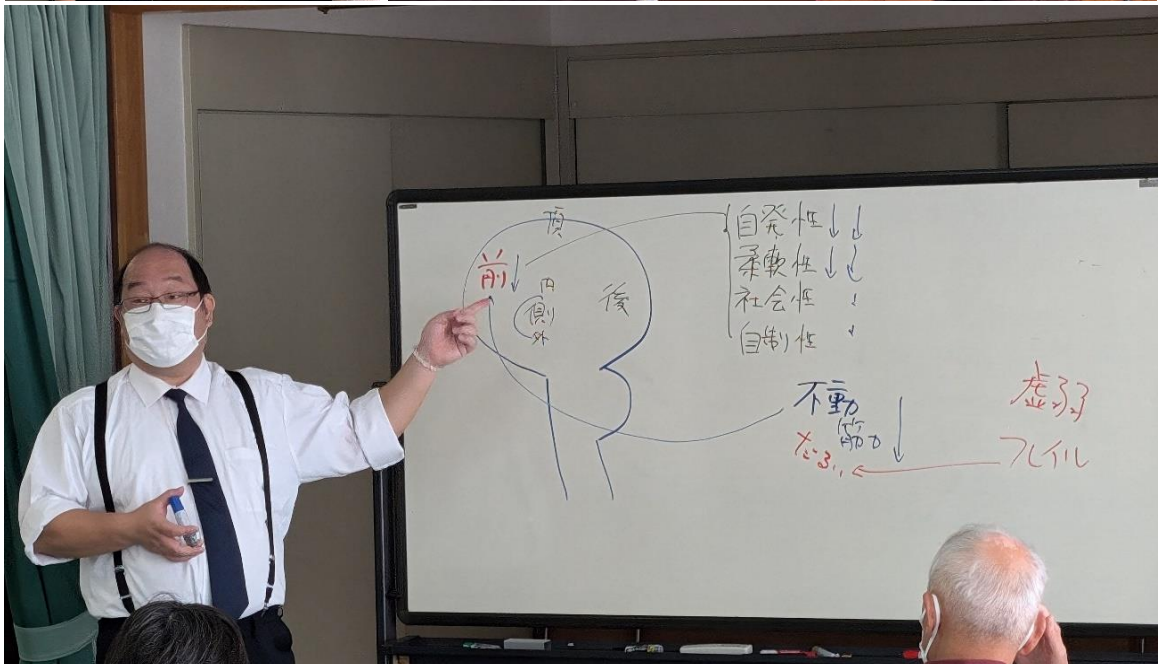 頂
前↓
内
側
外
後
自発性↓↓
柔軟性↓↓
社会性
自制性
不動
筋力↓
虚弱
フレイル